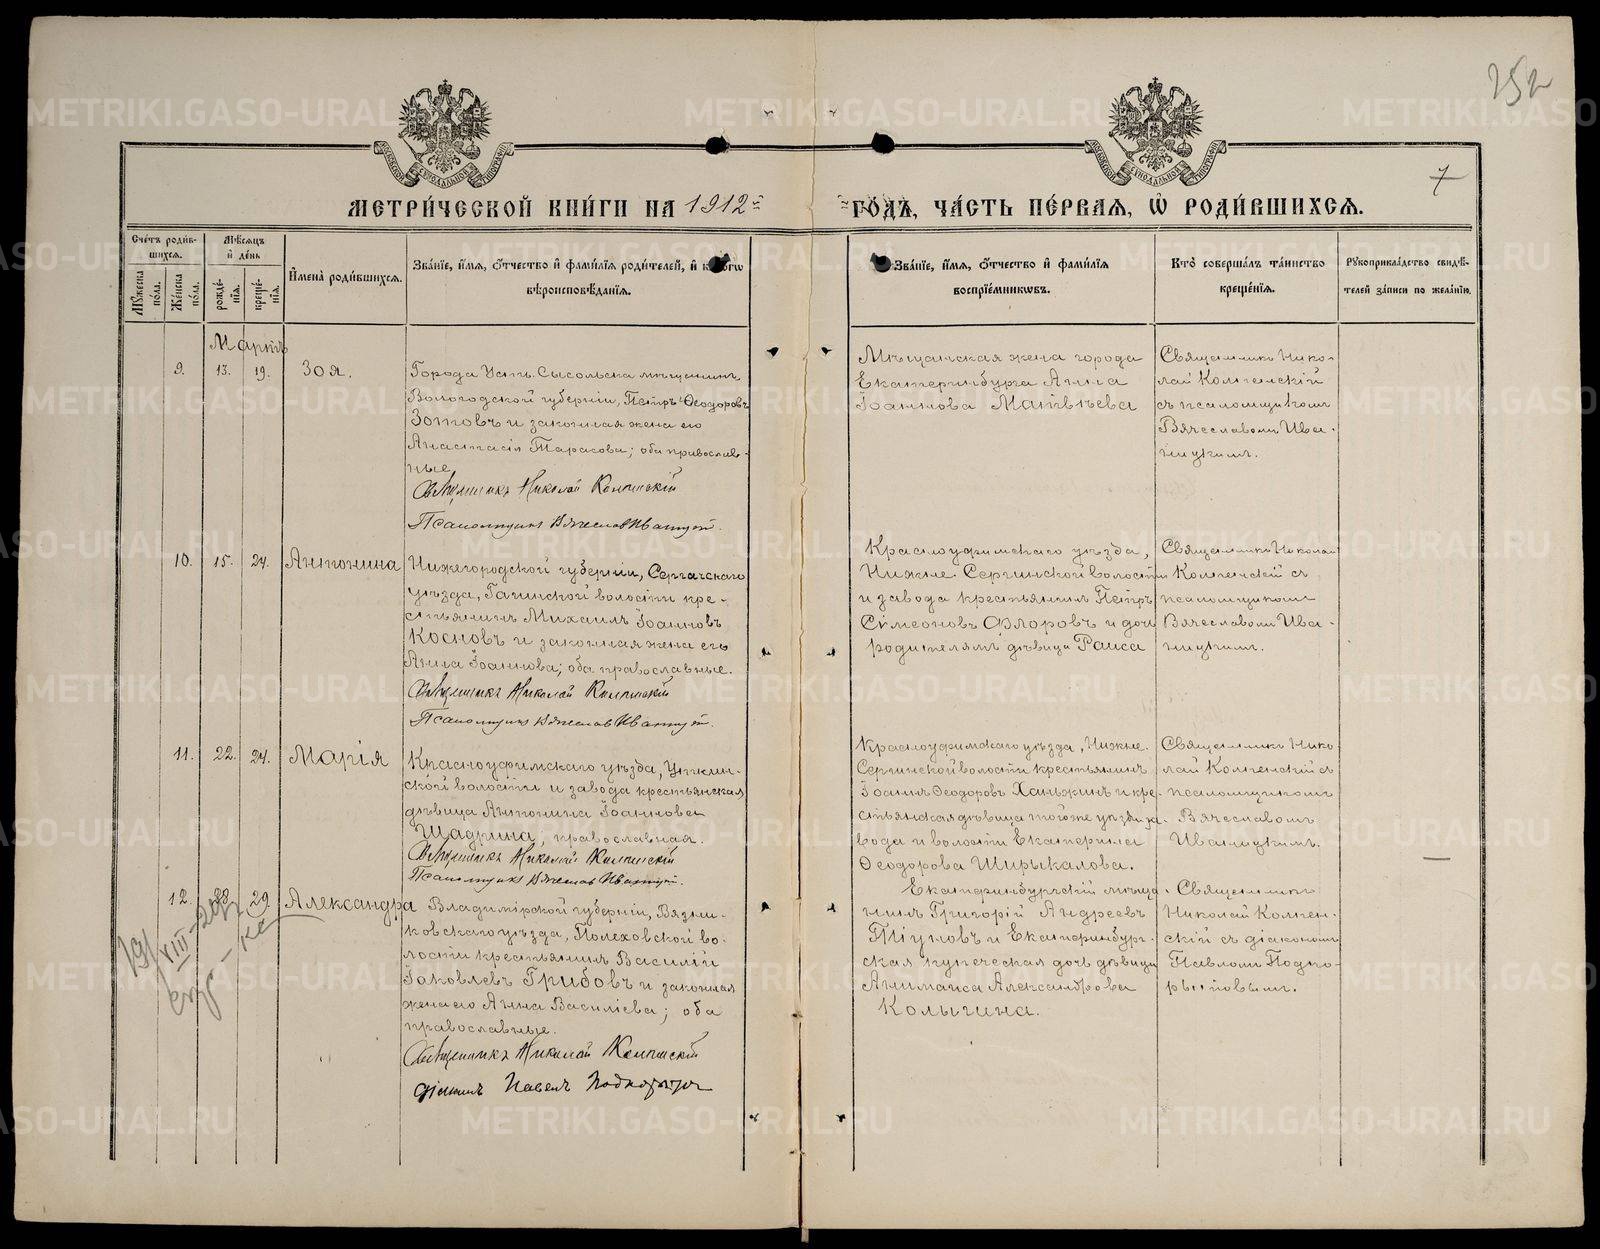 252
7
МОСКОВСКОЙ СѴНОДАЛЬНОЙ ТИПОГРАФІИ
МОСКОВСКОЙ СѴНОДАЛЬНОЙ ТИПОГРАФІИ
МЕТРИ́ЧЕСКОЙ КНИ́ГИ НА 1912 й
й ГО́ДЪ, ЧА́СТЬ ПЕ́РВАЯ, Ѡ҆ РОДИ́ВШИХСЯ.
Сче́тъ роди́в-
шихся.
Мѣ́сяцъ
и҆ де́нь
Му́жеска
по́ла.
Же́нска
по́ла.
рожде́-
нїя.
креще́-
нїя.
И҆мена̀ роди́вшихся.
Зва́нїе, и҆́мя, ѻ҆́тчество и҆ фами́лїя роди́телей, и҆ како́гѡ
вѣроисповѣ́данїя.
Зва́нїе, и҆́мя, ѻ҆́тчество и҆ фами́лїя
воспрїе́мникѡвъ.
Кто̀ соверша́лъ та́инство
креще́нїя.
Рꙋкоприкла́дство свидѣ́-
телей за́писи по жела́нїю.
Мартъ
9. 13. 19. Зоя.
Города Усть-Сысольска мѣщанинъ,
Вологодской губерніи, Петръ Ѳеодоровъ
Зотовъ и законная жена его
Анастасія Тарасова; оба православ-
ные
Священникъ Николай Компенскій
Псаломщикъ Вячеслав Иваницкій.
Мѣщанская жена города
Екатеринбурга Анна
Іоаннова Матвѣева
Священникъ Нико-
лай Компенскій
съ псаломщикомъ
Вячеславомъ Ива-
ницкимъ.
10. 15. 24. Антонина
Нижегородской губерніи, Сергачскаго
уѣзда, Гагинской волости кре-
стьянинъ Михаилъ Іоанновъ
Косновъ и законная жена его
Анна Іоаннова; оба православные.
Священникъ Николай Компенскій
Псаломщикъ Вячеслав Иваницкій.
Красноуфимскаго уѣзда,
Нижне-Сергинской волости
и завода крестьянинъ Петръ
Сѵмеоновъ Флоровъ и дочь
родителямъ дѣвица Раиса
Священникъ Николай
Компенскій съ
псаломщикомъ
Вячеславомъ Ива-
ницкимъ.
11. 22. 24. Марія
Красноуфимскаго уѣзда, Уткин-
ской волости и завода крестьянская
дѣвица Антонина Іоаннова
Щадрина, православная.
Священникъ Николай Компенскій
Псаломщикъ Вячеслав Иваницкій.
Красноуфимскаго уѣзда, Нижне-
Сергинской волости крестьянинъ
Іоаннъ Ѳеодоровъ Ханьжинъ и кре-
стьянская дѣвица того же уѣзда за-
вода и волости Екатерина
Ѳеодорова Ширыкалова.
Священникъ Нико
лай Компенскій съ
псаломщикомъ
Вячеславомъ
Иваницкимъ.
12. 29. Александра
Владимірской губерніи, Вязни-
ковскаго уѣзда, Полеховской во-
лости крестьянинъ Василій
Іаковлевъ Грибовъ и законная
жена его Анна Василіева; оба
православные.
Священникъ Николай Компенскій
діаконъ Павелъ Подкорытов
Екатеринбургскій мѣща-
нинъ Григорій Андреевъ
Тіуновъ и Екатеринбург-
ская купеческая дочь дѣвица
Анимаиса Александрова
Колыгина.
Священникъ
Николай Компен-
скій съ діакономъ
Павломъ Подко-
рытовымъ.
METRIKI.GASO-URAL.RU